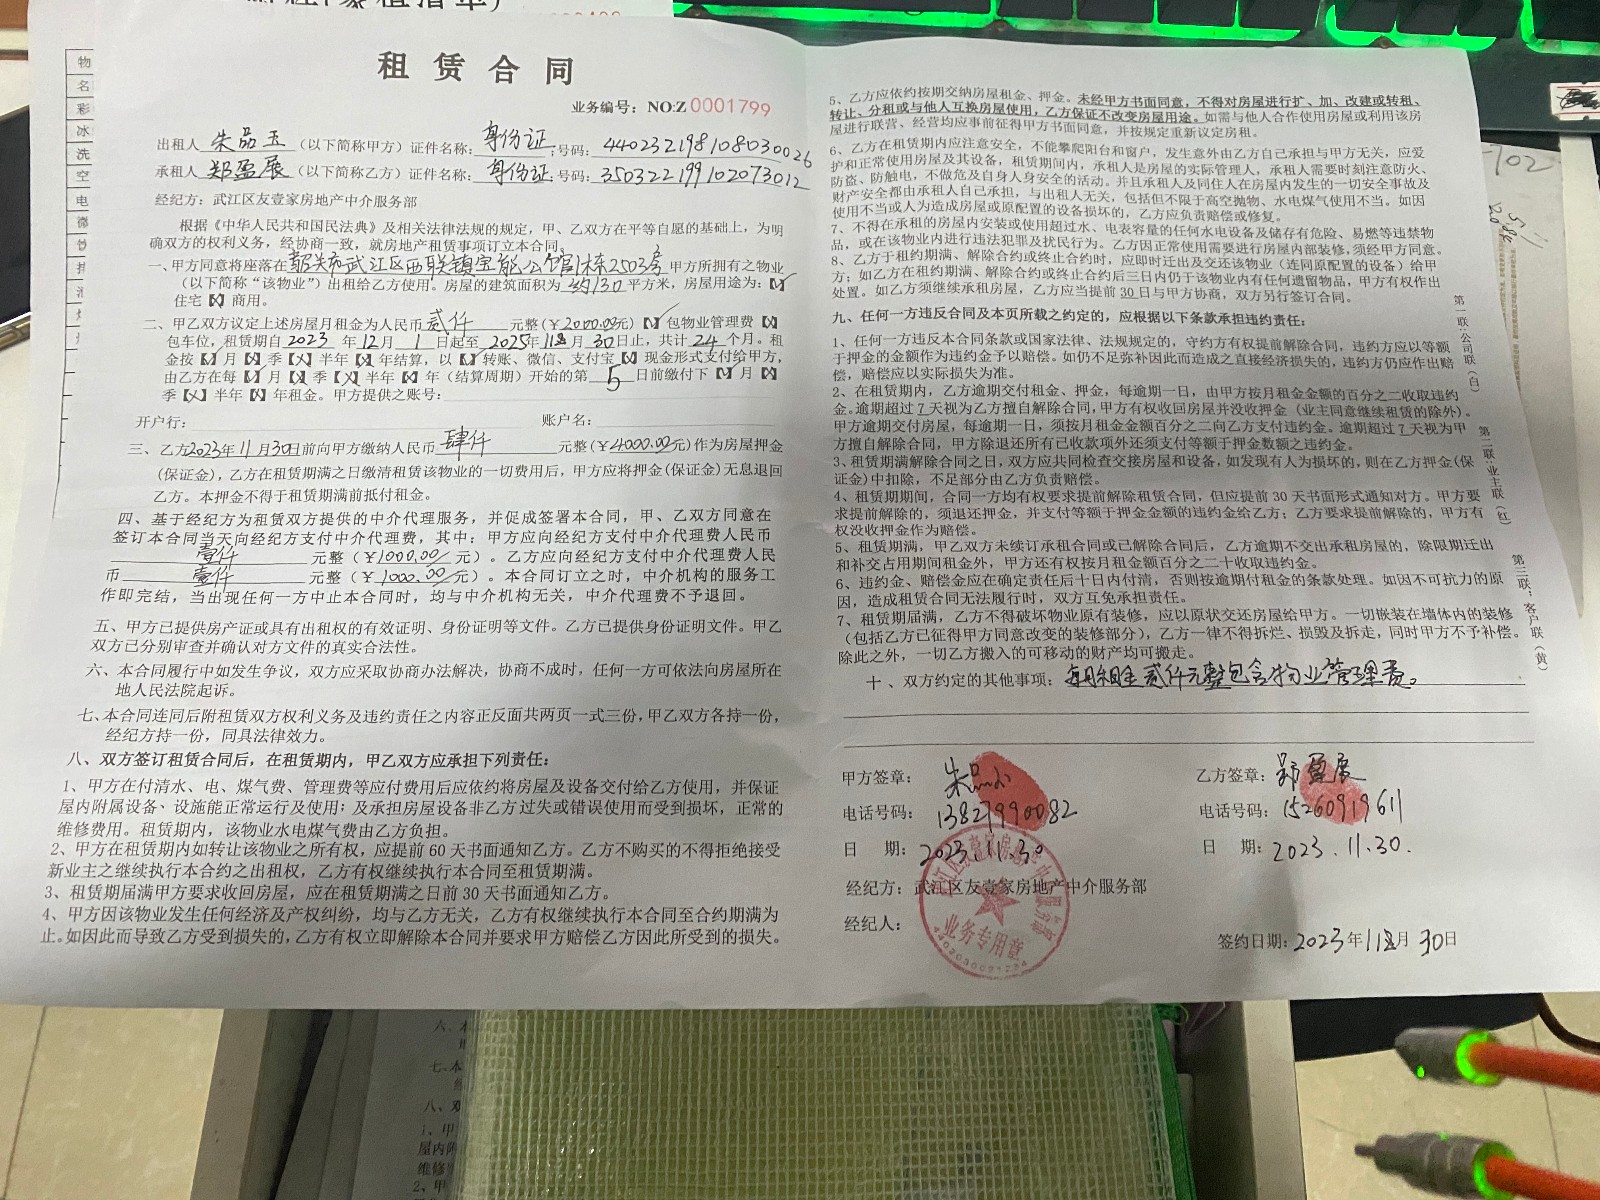 租赁合同
业务编号：NO:Z 0001799
出租人 朱品玉 （以下简称甲方）证件名称：身份证；号码：440232198108030026
承租人 郑盈展 （以下简称乙方）证件名称：身份证 号码：350322199102073012
经纪方：武江区友壹家房地产中介服务部
根据《中华人民共和国民法典》及相关法律法规的规定，甲、乙双方在平等自愿的基础上，为明
确双方的权利义务，经协商一致，就房地产租赁事项订立本合同。
一、甲方同意将座落在韶关市武江区西联镇宝能公馆1栋2503房 甲方所拥有之物业
（以下简称“该物业”）出租给乙方使用。房屋的建筑面积为 约130 平方米，房屋用途为：【✓】
住宅【×】商用。
二、甲乙双方议定上述房屋月租金为人民币 贰仟 元整(￥2000.00元)【✓】包物业管理费【×】
包车位，租赁期自 2023 年12月 1 日起至 2025年11月 30日止，共计 24 个月。租
金按【✓】月【×】季【×】半年【×】年结算，以【✓】转账、微信、支付宝【×】现金形式支付给甲方，
由乙方在每【✓】月【×】季【×】半年【×】年（结算周期）开始的第 5 日前缴付下【✓】月【×】
季【×】半年【×】年租金。甲方提供之账号：
开户行： 账户名：
三、乙方2023年11月30日前向甲方缴纳人民币 肆仟 元整(￥4000.00元)作为房屋押金
(保证金)，乙方在租赁期满之日缴清租赁该物业的一切费用后，甲方应将押金(保证金)无息退回
乙方。本押金不得于租赁期满前抵付租金。
四、基于经纪方为租赁双方提供的中介代理服务，并促成签署本合同，甲、乙双方同意在
签订本合同当天向经纪方支付中介代理费，其中：甲方应向经纪方支付中介代理费人民币
壹仟 元整（￥1000.00/ 元）。乙方应向经纪方支付中介代理费人民
币 壹仟 元整（￥1000.00/ 元）。本合同订立之时，中介机构的服务工
作即完结，当出现任何一方中止本合同时，均与中介机构无关，中介代理费不予退回。
五、甲方已提供房产证或具有出租权的有效证明、身份证明等文件。乙方已提供身份证明文件。甲乙
双方已分别审查并确认对方文件的真实合法性。
六、本合同履行中如发生争议，双方应采取协商办法解决，协商不成时，任何一方可依法向房屋所在
地人民法院起诉。
七、本合同连同后附租赁双方权利义务及违约责任之内容正反面共两页一式三份，甲乙双方各持一份，
经纪方持一份，同具法律效力。
八、双方签订租赁合同后，在租赁期内，甲乙双方应承担下列责任：
1、甲方在付清水、电、煤气费、管理费等应付费用后应依约将房屋及设备交付给乙方使用，并保证
屋内附属设备、设施能正常运行及使用；及承担房屋设备非乙方过失或错误使用而受到损坏，正常的
维修费用。租赁期内，该物业水电煤气费由乙方负担。
2、甲方在租赁期内如转让该物业之所有权，应提前 60 天书面通知乙方。乙方不购买的不得拒绝接受
新业主之继续执行本合约之出租权，乙方有权继续执行本合同至租赁期满。
3、租赁期届满甲方要求收回房屋，应在租赁期满之日前 30 天书面通知乙方。
4、甲方因该物业发生任何经济及产权纠纷，均与乙方无关，乙方有权继续执行本合同至合约期满为
止。如因此而导致乙方受到损失的，乙方有权立即解除本合同并要求甲方赔偿乙方因此所受到的损失。
5、乙方应依约按期交纳房屋租金、押金。未经甲方书面同意，不得对房屋进行扩、加、改建或转租、
转让、分租或与他人互换房屋使用，乙方保证不改变房屋用途。如需与他人合作使用房屋或利用该房
屋进行联营、经营均应事前征得甲方书面同意，并按规定重新议定房租。
6、乙方在租赁期内应注意安全，不能攀爬阳台和窗户，发生意外由乙方自己承担与甲方无关，应爱
护和正常使用房屋及其设备，租赁期间内，承租人是房屋的实际管理人，承租人需要时刻注意防火、
防盗、防触电，不做危及自身人身安全的活动。并且承租人及同住人在房屋内发生的一切安全事故及
财产安全都由承租人自己承担，与出租人无关，包括但不限于高空抛物、水电煤气使用不当。如因
使用不当或人为造成房屋或原配置的设备损坏的，乙方应负责赔偿或修复。
7、不得在承租的房屋内安装或使用超过水、电表容量的任何水电设备及储存有危险、易燃等违禁物
品，或在该物业内进行违法犯罪及扰民行为。乙方因正常使用需要进行房屋内部装修，须经甲方同意。
8、乙方于租约期满、解除合约或终止合约时，应即时迁出及交还该物业（连同原配置的设备）给甲
方；如乙方在租约期满、解除合约或终止合约后三日内仍于该物业内有任何遗留物品，甲方有权作出
处置。如乙方须继续承租房屋，乙方应当提前 30 日与甲方协商，双方另行签订合同。
九、任何一方违反合同及本页所载之约定的，应根据以下条款承担违约责任：
1、任何一方违反本合同条款或国家法律、法规规定的，守约方有权提前解除合同，违约方应以等额
于押金的金额作为违约金予以赔偿。如仍不足弥补因此而造成之直接经济损失的，违约方仍应作出赔
偿，赔偿应以实际损失为准。
2、在租赁期内，乙方逾期交付租金、押金，每逾期一日，由甲方按月租金金额的百分之二收取违约
金。逾期超过 7 天视为乙方擅自解除合同，甲方有权收回房屋并没收押金（业主同意继续租赁的除外）。
甲方逾期交付房屋，每逾期一日，须按月租金金额百分之二向乙方支付违约金。逾期超过 7 天视为甲
方擅自解除合同，甲方除退还所有已收款项外还须支付等额于押金数额之违约金。
3、租赁期满解除合同之日，双方应共同检查交接房屋和设备，如发现有人为损坏的，则在乙方押金(保
证金)中扣除，不足部分由乙方负责赔偿。
4、租赁期期间，合同一方均有权要求提前解除租赁合同，但应提前 30 天书面形式通知对方。甲方要
求提前解除的，须退还押金，并支付等额于押金金额的违约金给乙方；乙方要求提前解除的，甲方有
权没收押金作为赔偿。
5、租赁期满，甲乙双方未续订承租合同或已解除合同后，乙方逾期不交出承租房屋的，除限期迁出
和补交占用期间租金外，甲方还有权按月租金额百分之二十收取违约金。
6、违约金、赔偿金应在确定责任后十日内付清，否则按逾期付租金的条款处理。如因不可抗力的原
因，造成租赁合同无法履行时，双方互免承担责任。
7、租赁期届满，乙方不得破坏物业原有装修，应以原状交还房屋给甲方。一切嵌装在墙体内的装修
（包括乙方已征得甲方同意改变的装修部分），乙方一律不得拆烂、损毁及拆走，同时甲方不予补偿。
除此之外，一切乙方搬入的可移动的财产均可搬走。
十、双方约定的其他事项：每月租金贰仟元整包含物业管理费。
甲方签章： 朱品玉
电话号码：13827990082
日 期：2023.11.30
经纪方：武江区友壹家房地产中介服务部
经纪人：
乙方签章：郑盈展
电话号码：15260919611
日 期：2023.11.30.
签约日期：2023年11月 30日
业务专用章
第一联：公司联（白）
第二联：业主联（红）
第三联：客户联（黄）
物
名
彩
冰
洗
空
电
微
702